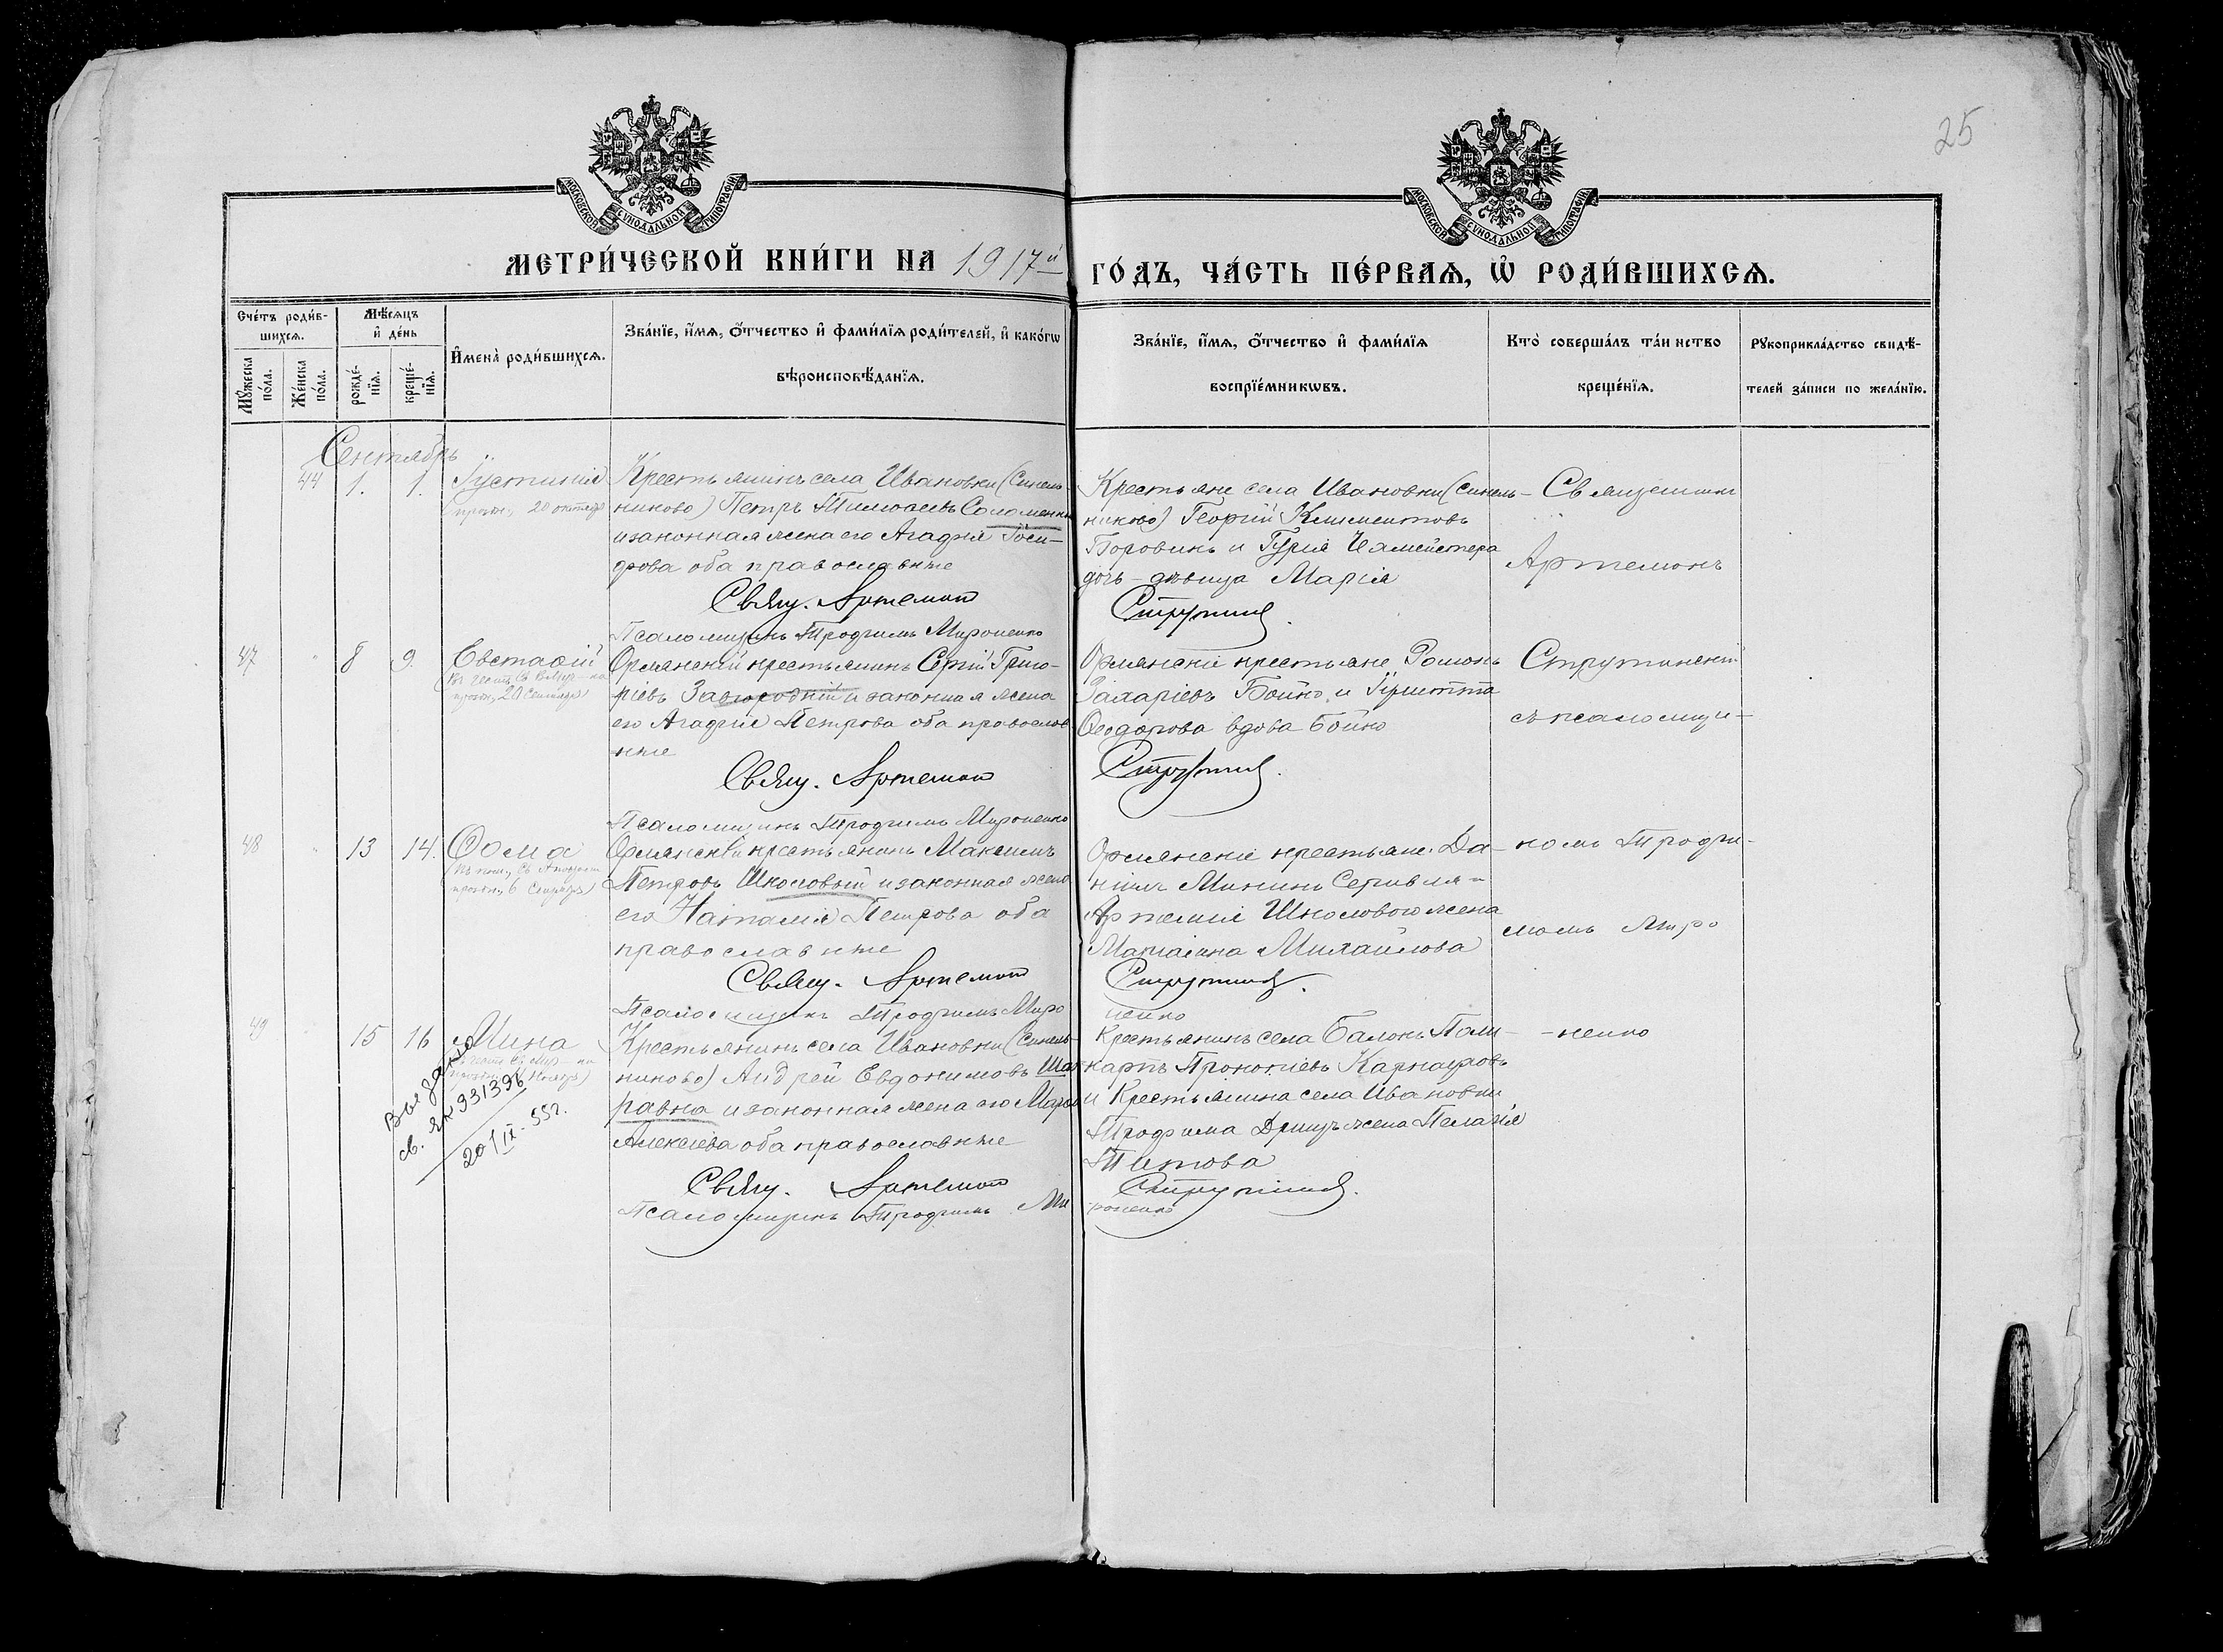 25
МОСКОВСКОЙ СѴНОДАЛЬНОЙ ТИПОГРАФІИ
МОСКОВСКОЙ СѴНОДАЛЬНОЙ ТИПОГРАФІИ
МЕТРИ́ЧЕСКОЙ КНИ́ГИ НА 1917й ГО́ДЪ, ЧА́СТЬ ПЕ́РВАѦ, Ѡ҆ РОДИ́ВШИХСѦ.
Сче́тъ роди́в-
шихсѧ.
Мꙋ́жеска по́ла.
Же́нска по́ла.
Мѣ́сѧцъ
и҆ де́нь
рожде́-
нїѧ.
креще́-
нїѧ.
И҆мена̀ роди́вшихсѧ.
Зва́нїе, и҆́мѧ, ѻ҆́тчество и҆ фами́лїѧ роди́телей, и҆ како́гѡ
вѣроисповѣ́данїѧ.
Зва́нїе, и҆́мѧ, ѻ҆́тчество и҆ фами́лїѧ
воспрїе́мникѡвъ.
Кто̀ соверша́лъ та́инство
креще́нїѧ.
Рꙋкоприкла́дство свидѣ́-
телей за́писи по жела́нїю.
Сентябрь
44 1. 1. Іустинія
Крестьянинъ села Ивановки (Синель-
никово) Петръ Тимофеевъ Соломенко
и законная жена его Агафія
оба православные
Свящ. Артемон
Псаломщикъ Трофимъ Мироненко
Крестьяне села Ивановки (Синель-
никово) Георгій Климентовъ
Боровикъ и Гурія
дочь - дѣвица Марія
Священник
Артемонъ
47 " 8 9. Евстафій
20 Сентября)
Орлянскій крестьянинъ Григо-
ріевъ Завгородній и законная жена
его Агафія Петрова оба православ
ные
Свящ. Артемон
Псаломщикъ Трофимъ Мироненко
Орлянскіе крестьяне Романъ
Захаріевъ Бойко и
Ѳеодорова вдова Бойко
Струтинскій
съ псаломщи-
48 " 13 14. Ѳома
Орлянскій крестьянинъ Максимъ
Петровъ Школовый и законная жена
его Наталія Петрова оба
православные
Свящ. Артемон
Псаломщикъ Трофимъ Миро
ненко
Орлянскіе крестьяне Да-
ніилъ Мининъ
Артемія Школового жена
Маріанна Михайлова
комъ Трофи-
момъ Миро
49 15 16 Мина
Крестьянинъ села Ивановки (Синель-
никово) Андрей Евдокимовъ Шап
равка и законная жена его
Алексѣева оба православные
Свящ. Артемон
Псаломщикъ Трофимъ Ми
роненко
Крестьянинъ села Балокъ Поли-
карпъ Прокопіевъ Карнауховъ
и Крестьянина села Ивановки
Трофима жена Пелагія
Титова
-ненко
Выдано
св. 931396
20/IX-55г.